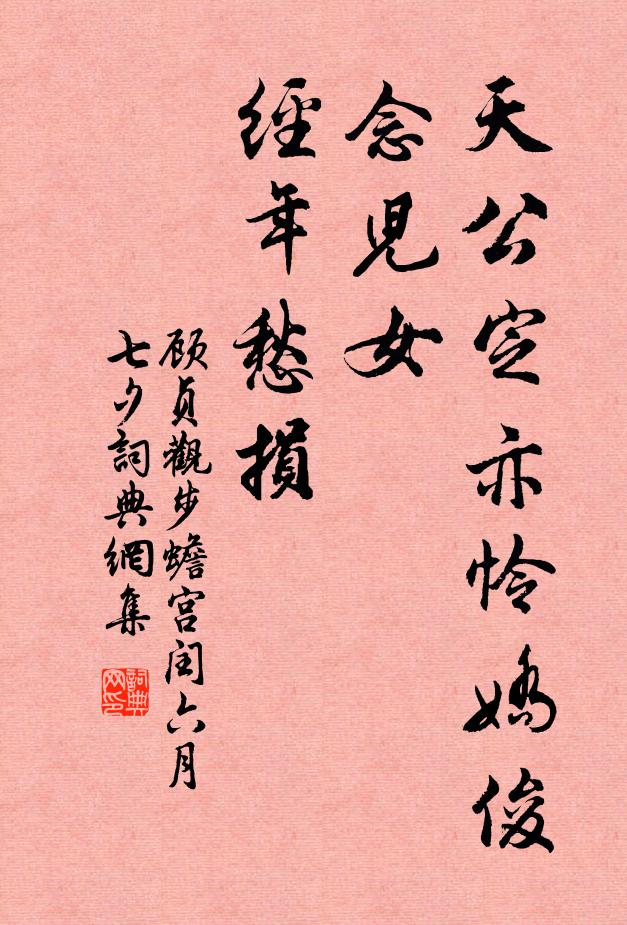 天公定亦怜嬌俊
念児女
經年愁損
顾貞觀步蟾宫闰六月
七夕詞典網集
詞典
网印